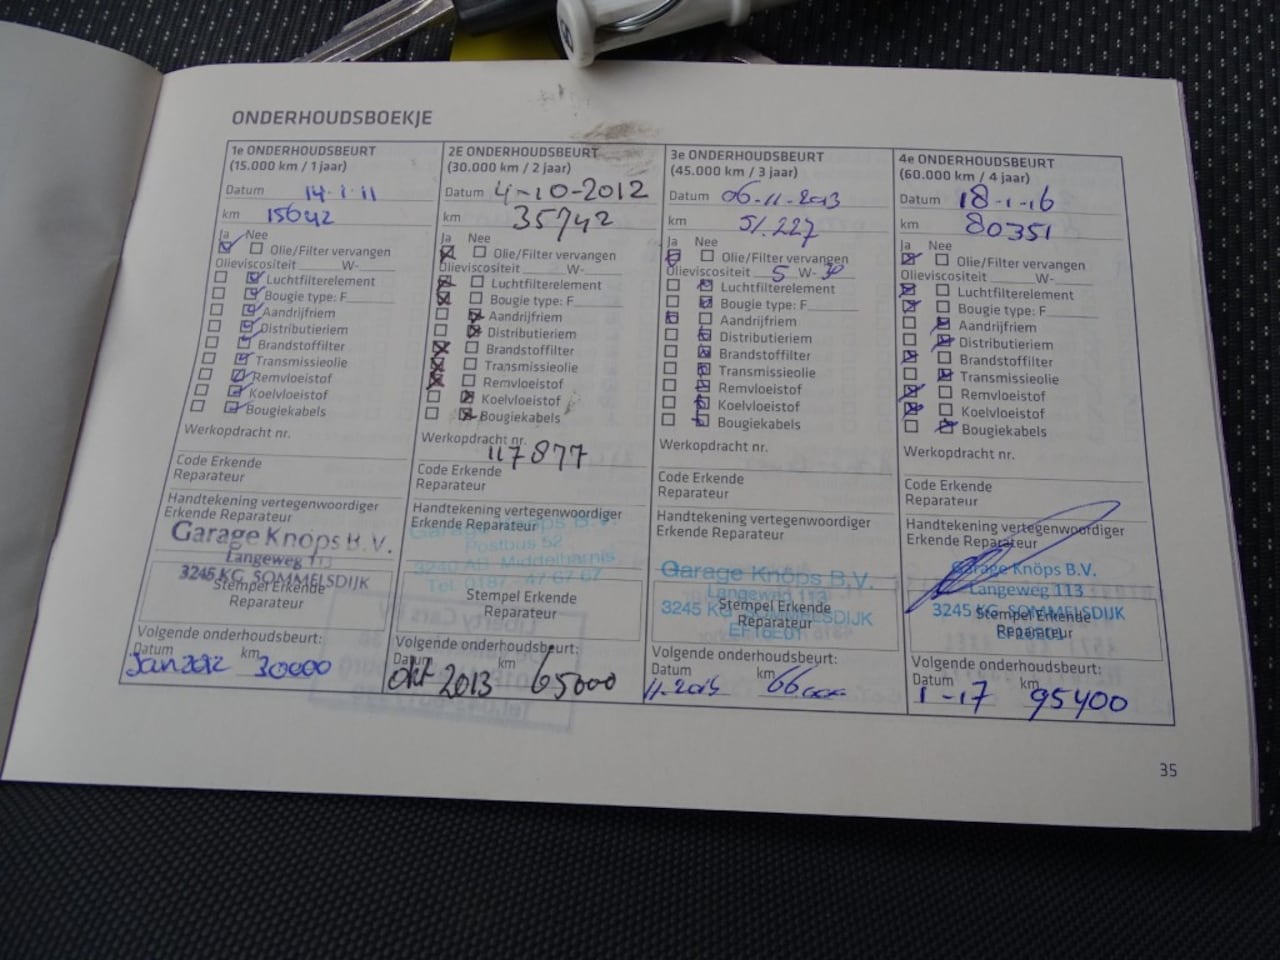 ONDERHOUDSBOEKJE
1e ONDERHOUDSBEURT
(15.000 km / 1 jaar)
Datum 14-1-11
km 15642
Ja Nee
Olie/Filter vervangen
Olieviscositeit W-
Luchtfilterelement
Bougie type: F
Aandrijfriem
Distributieriem
Brandstoffilter
Transmissieolie
Remvloeistof
Koelvloeistof
Bougiekabels
Werkopdracht nr.
Code Erkende
Reparateur
Handtekening vertegenwoordiger
Erkende Reparateur
Garage Knöps B.V.
Langeweg 113
3245 KG SOMMELSDIJK
Stempel Erkende
Reparateur
Volgende onderhoudsbeurt:
Datum km
Jan 2012 30000
2E ONDERHOUDSBEURT
(30.000 km / 2 jaar)
Datum 4-10-2012
km 35742
Ja Nee
Olie/Filter vervangen
Olieviscositeit W-
Luchtfilterelement
Bougie type: F
Aandrijfriem
Distributieriem
Brandstoffilter
Transmissieolie
Remvloeistof
Koelvloeistof
Bougiekabels
Werkopdracht nr.
117877
Code Erkende
Reparateur
Handtekening vertegenwoordiger
Erkende Reparateur
Garage Knöps B.V.
Postbus 52
3240 AB Middelharnis
Tel. 0187 - 47 67 67
Stempel Erkende
Reparateur
Volgende onderhoudsbeurt:
Datum km
okt 2013 65000
3e ONDERHOUDSBEURT
(45.000 km / 3 jaar)
Datum 06-11-2013
km 51.227
Ja Nee
Olie/Filter vervangen
Olieviscositeit 5 W-30
Luchtfilterelement
Bougie type: F
Aandrijfriem
Distributieriem
Brandstoffilter
Transmissieolie
Remvloeistof
Koelvloeistof
Bougiekabels
Werkopdracht nr.
Code Erkende
Reparateur
Handtekening vertegenwoordiger
Erkende Reparateur
Garage Knöps B.V.
Langeweg 113
3245 KG SOMMELSDIJK
Stempel Erkende
Reparateur
Volgende onderhoudsbeurt:
Datum km
66.000
4e ONDERHOUDSBEURT
(60.000 km / 4 jaar)
Datum 18-1-16
km 80351
Ja Nee
Olie/Filter vervangen
Olieviscositeit W-
Luchtfilterelement
Bougie type: F
Aandrijfriem
Distributieriem
Brandstoffilter
Transmissieolie
Remvloeistof
Koelvloeistof
Bougiekabels
Werkopdracht nr.
Code Erkende
Reparateur
Handtekening vertegenwoordiger
Erkende Reparateur
Garage Knöps B.V.
Langeweg 113
3245 KG SOMMELSDIJK
Stempel Erkende
Reparateur
Volgende onderhoudsbeurt:
Datum km
1-17 95400
35